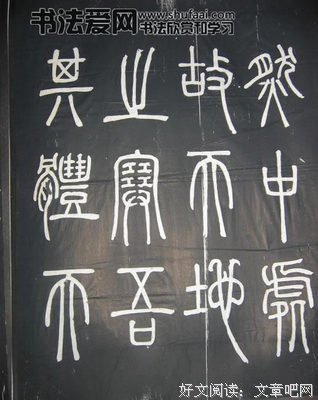 书法爱网 www.shufaai.com
书法欣赏和学习
然中處
故天地
之塞吾
其體天
好文阅读：文章吧网